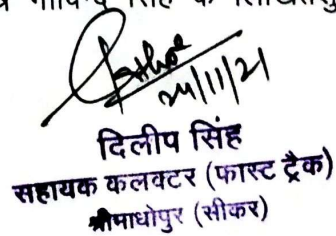 गोविन्द सिंह के
24/11/21
दिलीप सिंह
सहायक कलक्टर (फास्ट ट्रैक)
श्रीमाधोपुर (सीकर)